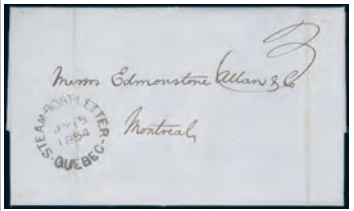 3
Messrs Edmonstone Allan & Co
Montreal
STEAM-BOAT-LETTER
15
1854
QUEBEC